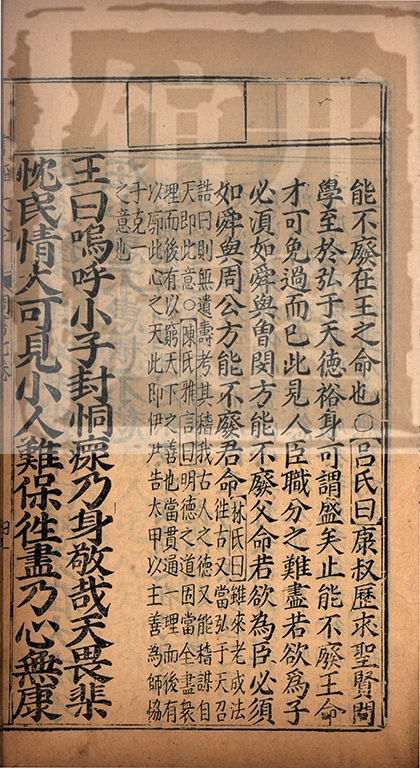 能不廢在王之命也○呂氏曰康叔歷求聖賢問
學至於弘于天德裕身可謂盛矣止能不廢王命
才可免過而已此見人臣職分之難盡若欲爲子
必湏如舜與曾閔方能不廢父命若欲為臣必須
如舜與周公方能不廢君命林氏曰雖來老成法
徃古又當弘于天召
誥曰則無遺壽考其稽我古人之德又能稽謀自
天即此意○陳氏雅言曰明德之道固當全盡衆
理而後有以窮天下之善也當貫通一理而後有
以廓此心之天此即伊尹告太甲以主善為師協
于克一
之意也
王曰嗚呼小子封恫瘝乃身敬哉天畏棐
忱民情大可見小人難保徃盡乃心無康